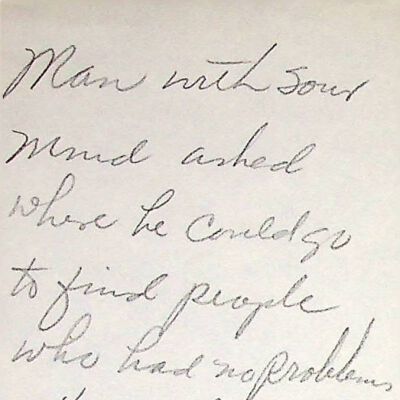 Man with sour
mind asked
where he could go
to find people
who had no problems